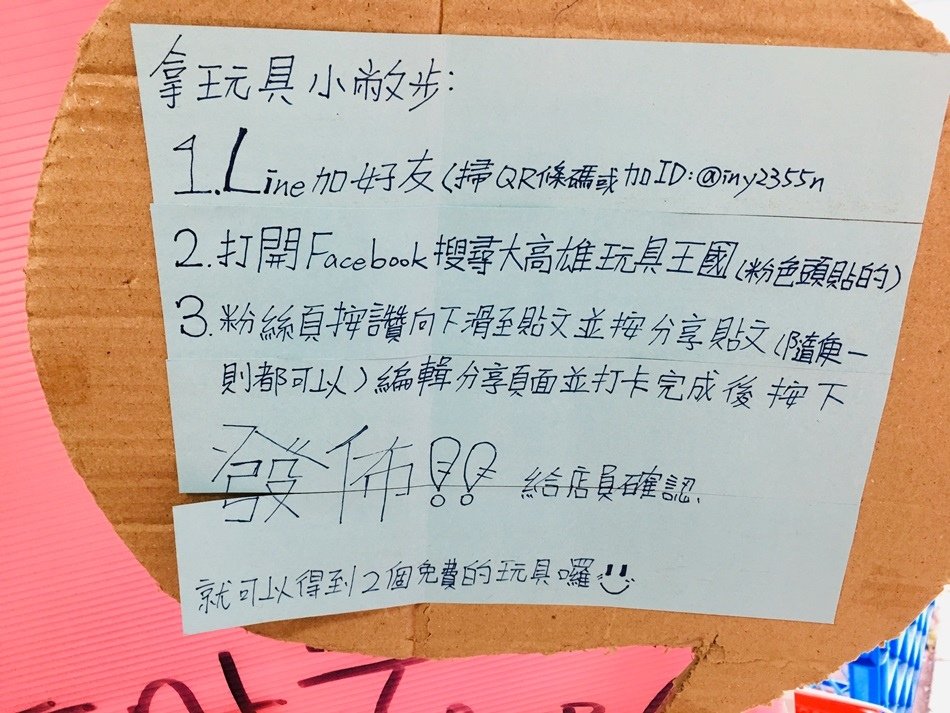 拿玩具小敝步:
1.Line加好友(掃QR條碼或加ID:@iny2355n
2.打開Facebook搜尋大高雄玩具王國(粉色頭貼的)
3.粉絲頁按讚向下滑至貼文並按分享貼文(隨便一
則都可以)編輯分享頁面並打卡完成後按下
發佈!! 給店員確認、
就可以得到2個免費的玩具囉